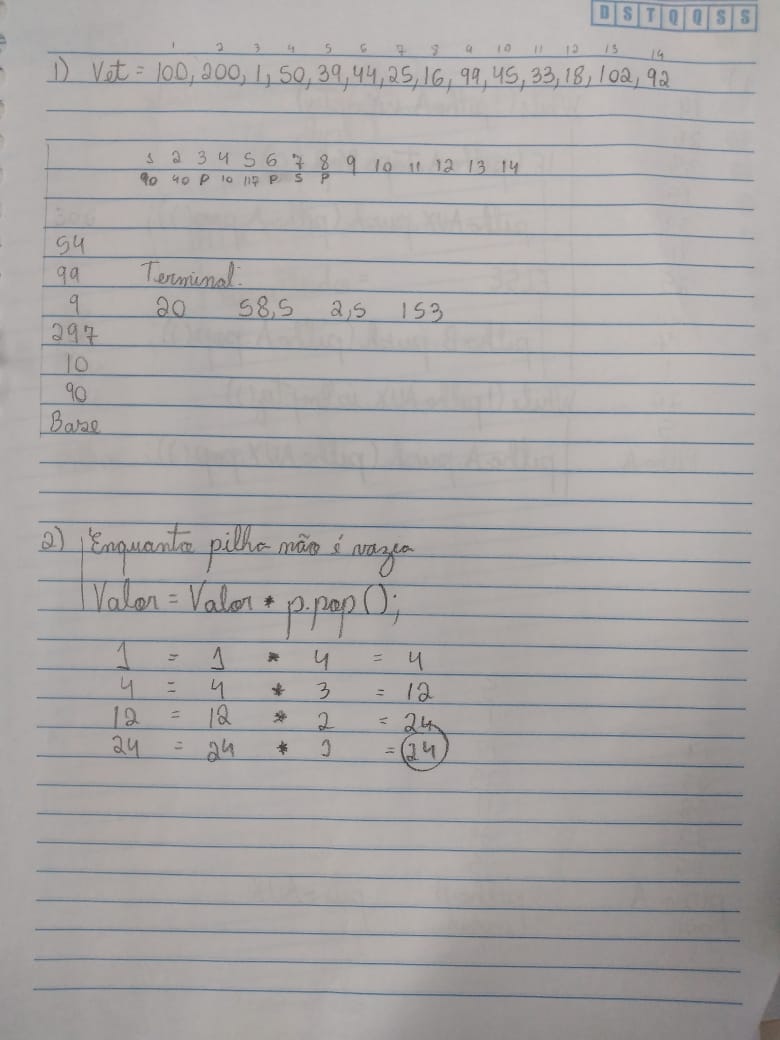 D S T Q Q S S
1 2 3 4 5 6 7 8 9 10 11 12 13 14
1) Vet = 100, 200, 1, 50, 39, 44, 25, 16, 99, 45, 33, 18, 102, 92
1 2 3 4 5 6 7 8 9 10 11 12 13 14
90 40 P 10 117 P S P
54
99 Terminal:
9 20 58,5 2,5 153
297
10
90
Base
2) Enquanto pilha não é vazia
Valor = Valor * p.pop();
1 = 1 * 4 = 4
4 = 4 * 3 = 12
12 = 12 * 2 = 24
24 = 24 * 1 = 24